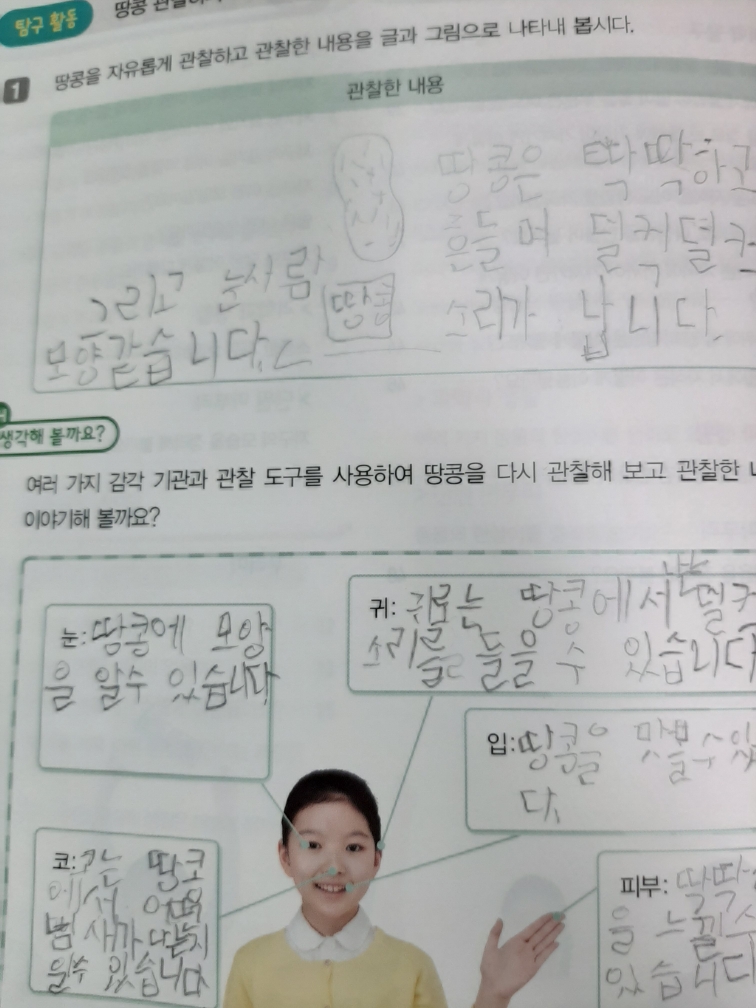 탐구 활동
땅콩
땅콩을 자유롭게 관찰하고 관찰한 내용을 글과 그림으로 나타내 봅시다.
1
관찰한 내용
땅콩은 딱딱하고
흔들며 덜컥덜커
소리가 납니다
땅콩
그리고 눈사람
모양같습니다.
생각해 볼까요?
여러 가지 감각 기관과 관찰 도구를 사용하여 땅콩을 다시 관찰해 보고 관찰한
이야기해 볼까요?
눈:땅콩에 모양
을 알수 있습니다
귀: 귀로는 땅콩에서 나는 덜커
소리를 들을 수 있습니다
입:땅콩을 맛볼수있
다.
코:코는 땅코
에서 어떤
냄새가 나는지
알수 있습니다
피부: 딱딱
을 느낄수
있습니다